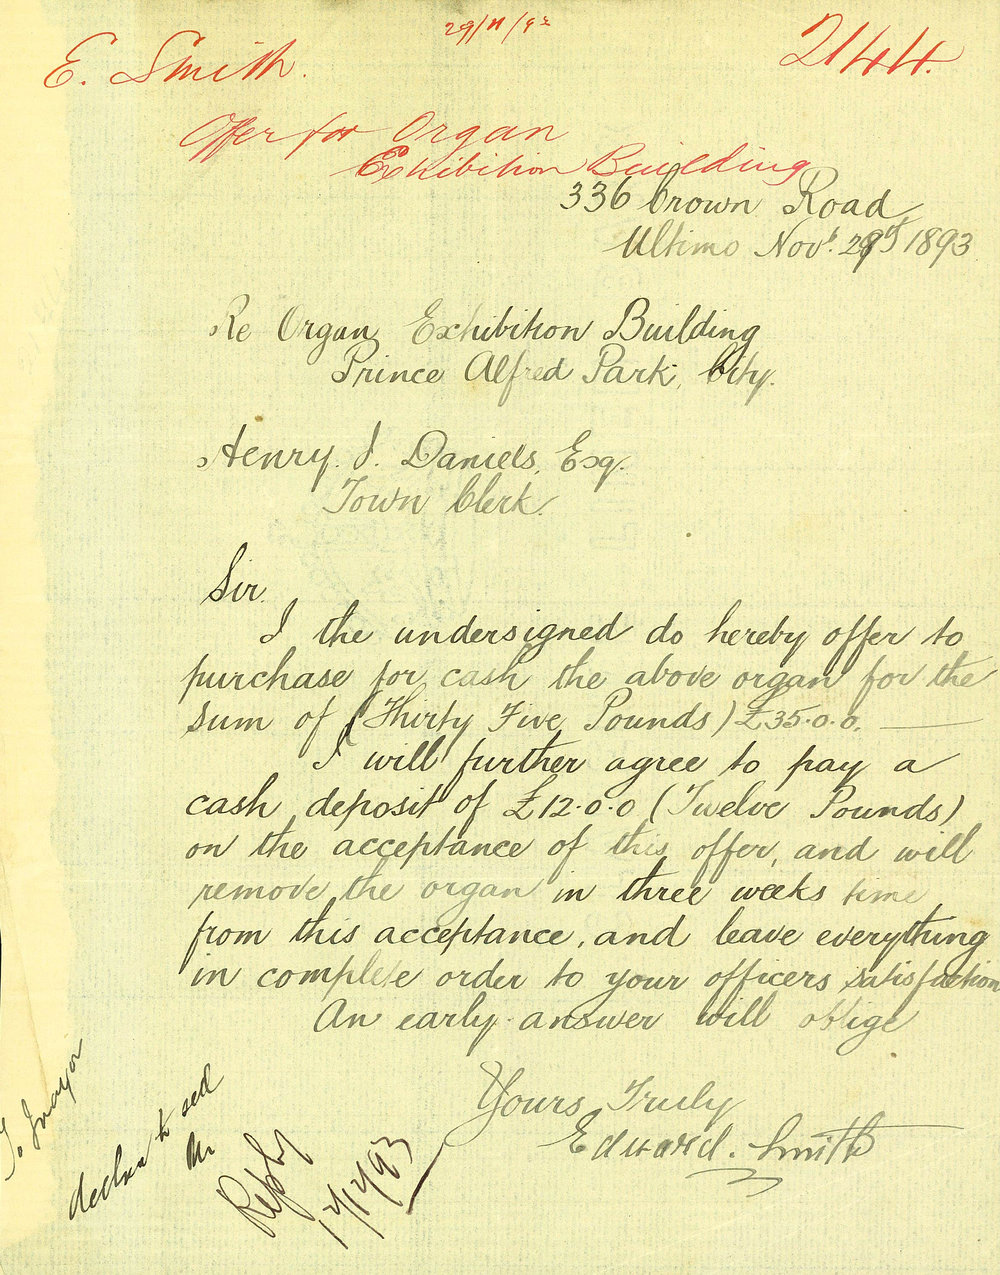 29/11/93
E. Smith.
2144.
Offer for Organ
Exhibition Building
336 Crown Road
Ultimo Novr. 29th 1893
Re Organ Exhibition Building
Prince Alfred Park, City.
Henry. J. Daniels, Esq.
Town Clerk.
Sir.
I the undersigned do hereby offer to
purchase for cash the above organ for the
sum of (Thirty Five Pounds) £35.0.0.
I will further agree to pay a
cash deposit of £12.0.0 (Twelve Pounds)
on the acceptance of this offer, and will
remove the organ in three weeks time
from this acceptance, and leave everything
in complete order to your officers satisfaction
An early answer will oblige
Yours Truly
Edward. Smith
To Mayor
decline to sell
Reply
1/12/93